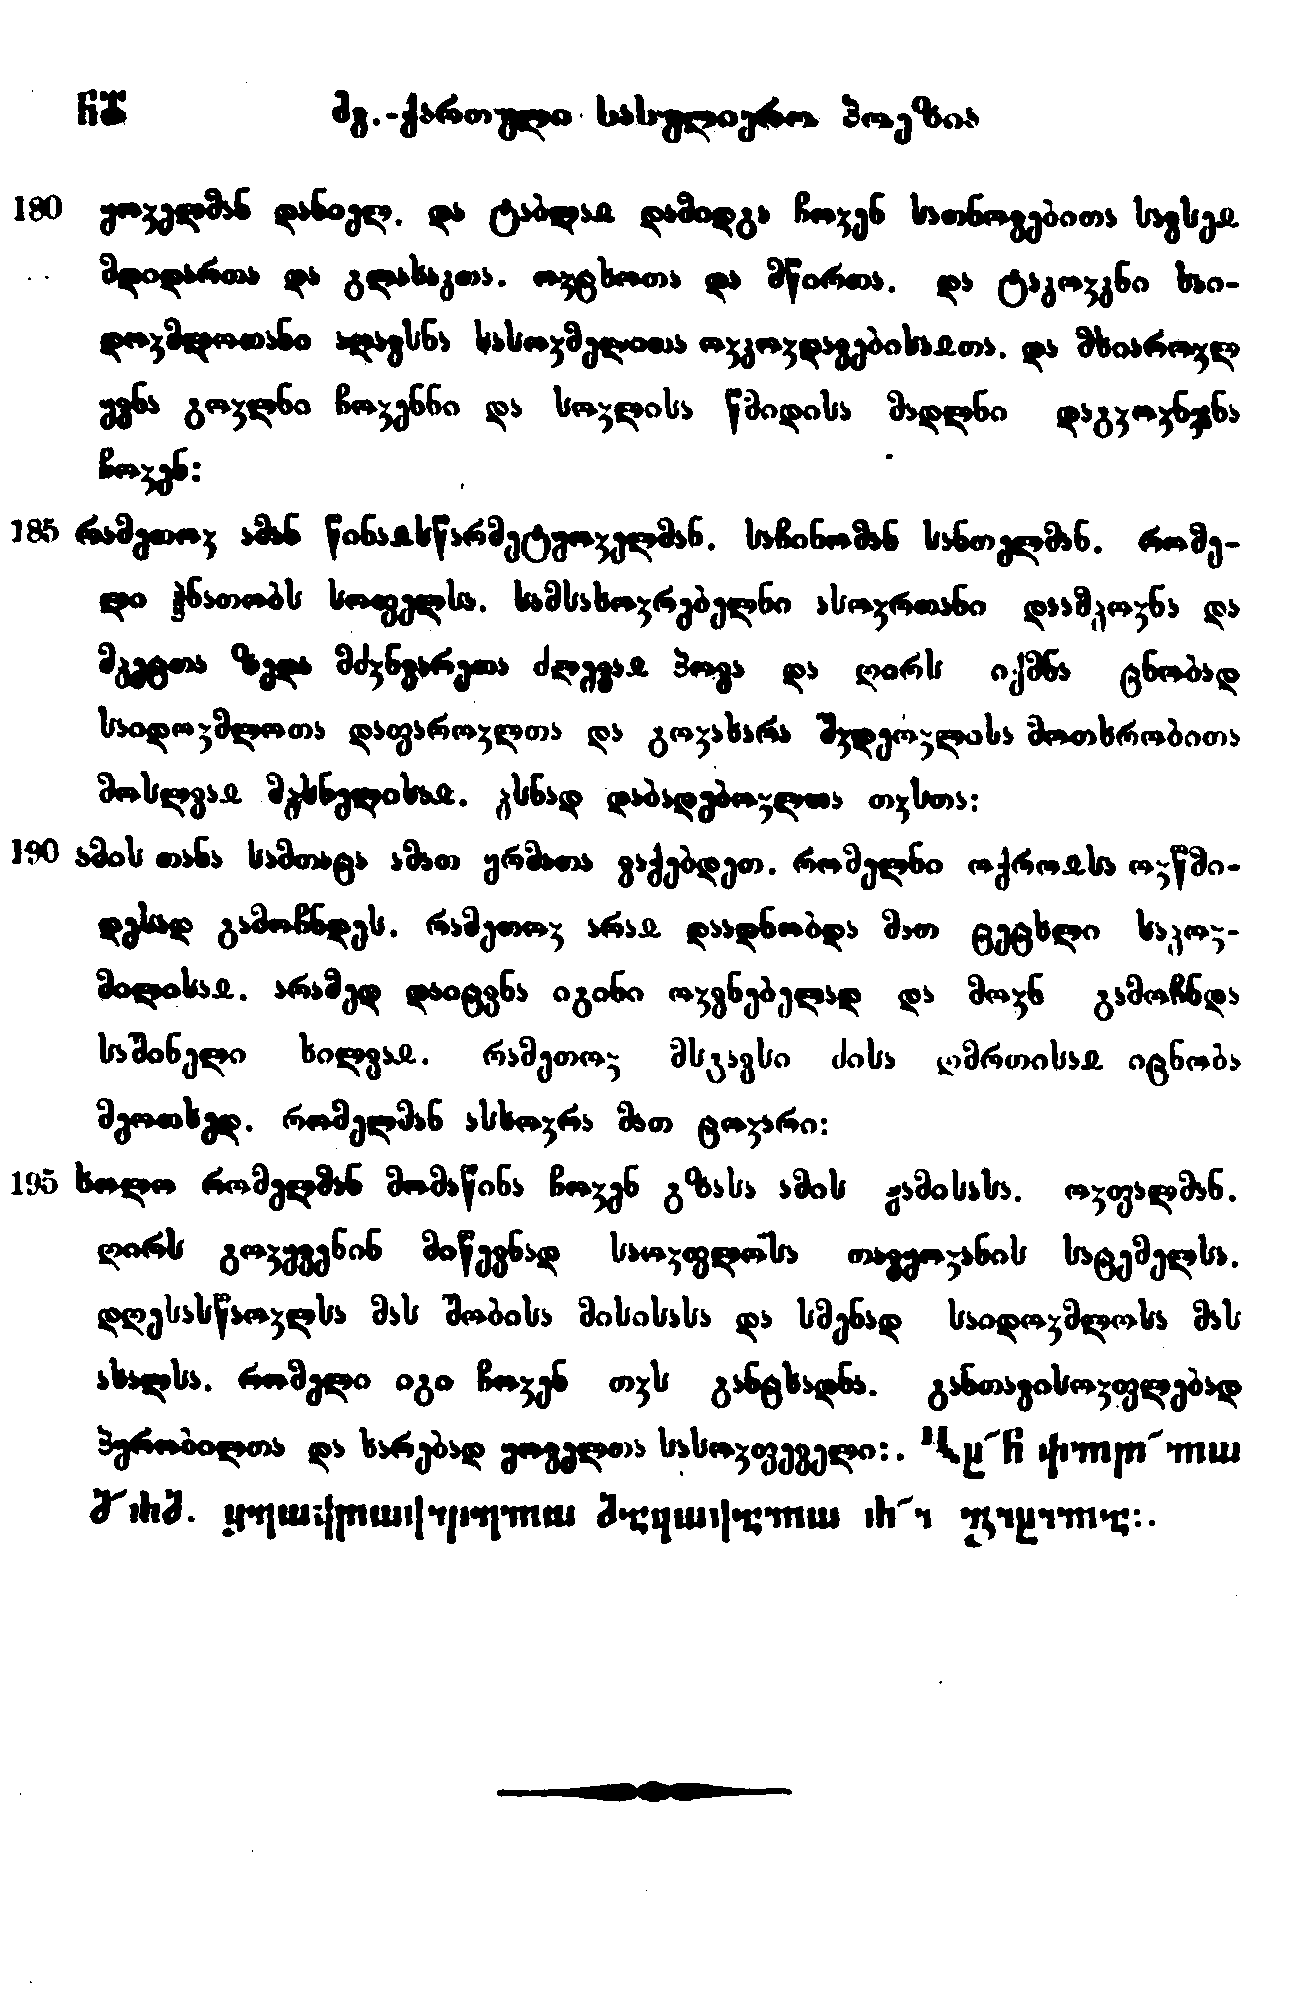 ძვ.-ქართული სასულიერო პოეზია
180 ყოველმან დანიელ. და ტაბლაჲ დამიდგა ჩოჳენ სათნოვებითა სავსეჲ
მდიდართა და გლახაკთა. ოჳცხოთა და მწირთა. და ტაკოჳკნი საი-
დოჳმლოთანი აღავსნა სასოჳმელითა ოჳკოჳდავებისაჲთა. და მხიაროჳლ
ყვნა გოჳლნი ჩოჳენნი და სოჳლისა წმიდისა მადლნი
ჩოჳენ:
185 რამეთოჳ ამან წინაჲსწარმეტყოჳელმან. საჩინომან სანთელმან. რომე-
ლი ჰნათობს სოფელსა. სამსახოჳრებელნი ასოჳრთანი დაამჴოჳნა და
მჴეცთა ზედა მძჳნვარეთა ძლევაჲ პოვა და ღირს იქმნა ცნობად
საიდოჳმლოთა დაფაროჳლთა და გოჳახარა შჳდეოჳლისა მოთხრობითა
მოსლვაჲ მჴსნელისაჲ. ჴსნად დაბადებოჳლთა თჳსთა:
190 ამის თანა სამთაცა ამათ ყრმათა ვაქებდეთ. რომელნი ოქროჲსა ოჳწმი-
დესად გამოჩნდეს. რამეთოჳ არაჲ დაადნობდა მათ ცეცხლი საჴოჳ-
მილისაჲ. არამედ დაიცვნა იგინი ოჳვნებელად და მოჳნ გამოჩნდა
საშინელი ხილვაჲ. რამეთოჳ მსგავსი ძისა ღმრთისაჲ იცნობა
მეოთხედ. რომელმან ასხოჳრა მათ ცოჳარი:
195 ხოლო რომელმან მომაწინა ჩოჳენ გზასა ამის ჟამისასა. ოჳფალმან.
ღირს გოჳყვენინ მიწევნად საოჳფლოსა თავყოჳანის საცემელსა.
დღესასწაოჳლსა მას შობისა მისისასა და სმენად საიდოჳმლოსა მას
ახალსა. რომელი იგი ჩოჳენ თჳს განცხადნა. განთავისოჳფლებად
პყრობილთა და ხარებად ყოველთა სასოჳფეველი:.